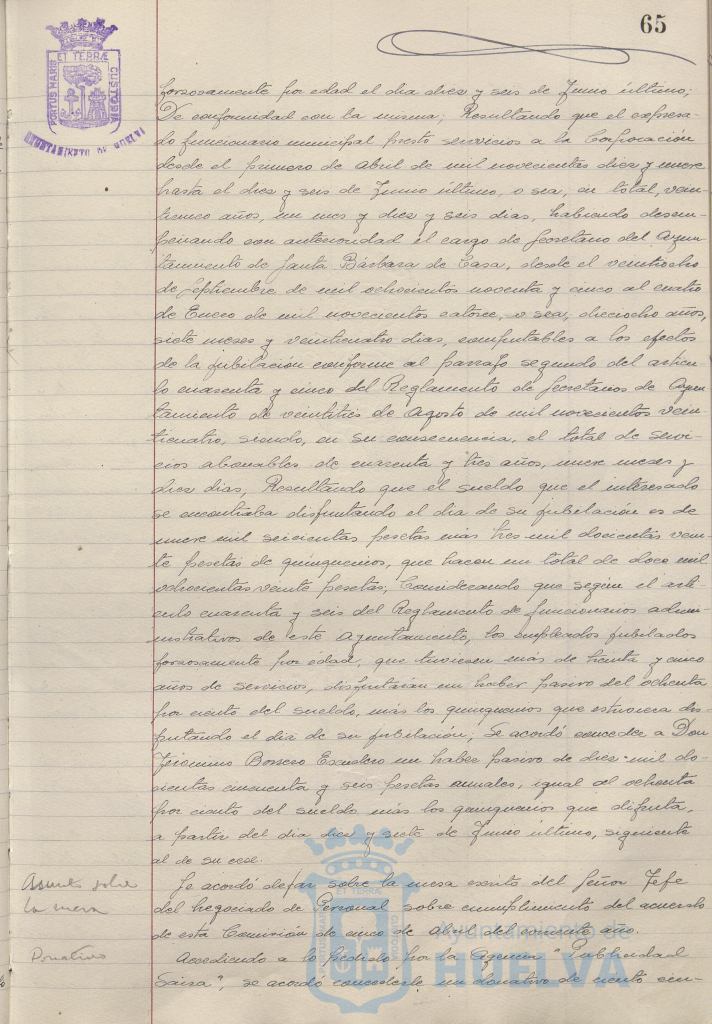 65
PORTUS MARIS ET TERRÆ CUSTODIA
AYUNTAMIENTO DE HUELVA
forzosamente por edad el dia diez y seis de Junio último;
De conformidad con la misma; Resultando que el expresa-
do funcionario municipal prestó servicios a la Corporación
desde el primero de Abril de mil novecientos diez y nueve
hasta el diez y seis de Junio último, o sea, en total, vein-
ticinco años, un mes y diez y seis dias, habiendo desem-
peñando con anterioridad el cargo de Secretario del Ayun-
tamiento de Santa Bárbara de Casa, desde el veintiocho
de Septiembre de mil ochocientos noventa y cinco al cuatro
de Enero de mil novecientos catorce, o sea, dieciocho años,
siete meses y veinticuatro dias, computables a los efectos
de la jubilación conforme al parrafo segundo del artícu-
lo cuarenta y cinco del Reglamento de Secretarios de Ayun-
tamiento de veintitrés de Agosto de mil novecientos vein-
ticuatro, siendo, en su consecuencia, el total de servi-
cios abonables de cuarenta y tres años, nueve meses y
diez dias, Resultando que el sueldo que el interesado
se encontraba disfrutando el dia de su jubilación es de
nueve mil seiscientas pesetas más tres mil doscientas vein-
te pesetas de quinquenios, que hacen un total de doce mil
ochocientas veinte pesetas; Considerando que según el artí-
culo cuarenta y seis del Reglamento de funcionarios admi-
nistrativos de este Ayuntamiento, los empleados jubilados
forzosamente por edad, que tuviesen más de treinta y cinco
años de servicios, disfrutarían un haber pasivo del ochenta
por ciento del sueldo, más los quinquenios que estuviera dis-
frutando el dia de su jubilación; Se acordó conceder a Don
Jeronimo Borrero Escudero un haber pasivo de diez mil do-
cientas cincuenta y seis pesetas anuales, igual al ochenta
por ciento del sueldo más los quinquenios que difruta,
a partir del dia diez y siete de Junio último, siguiente
al de su cese.
Asunto sobre
la mesa
Se acordó dejar sobre la mesa escrito del Señor Jefe
del Negociado de Personal sobre cumplimiento del acuerdo
de esta Comisión de cinco de Abril del corriente año.
Donativo
Accediendo a lo pedido por la Agencia "Publicidad
Saisa", se acordó concederle un donativo de ciento cin-
Ayuntamiento de
HUELVA